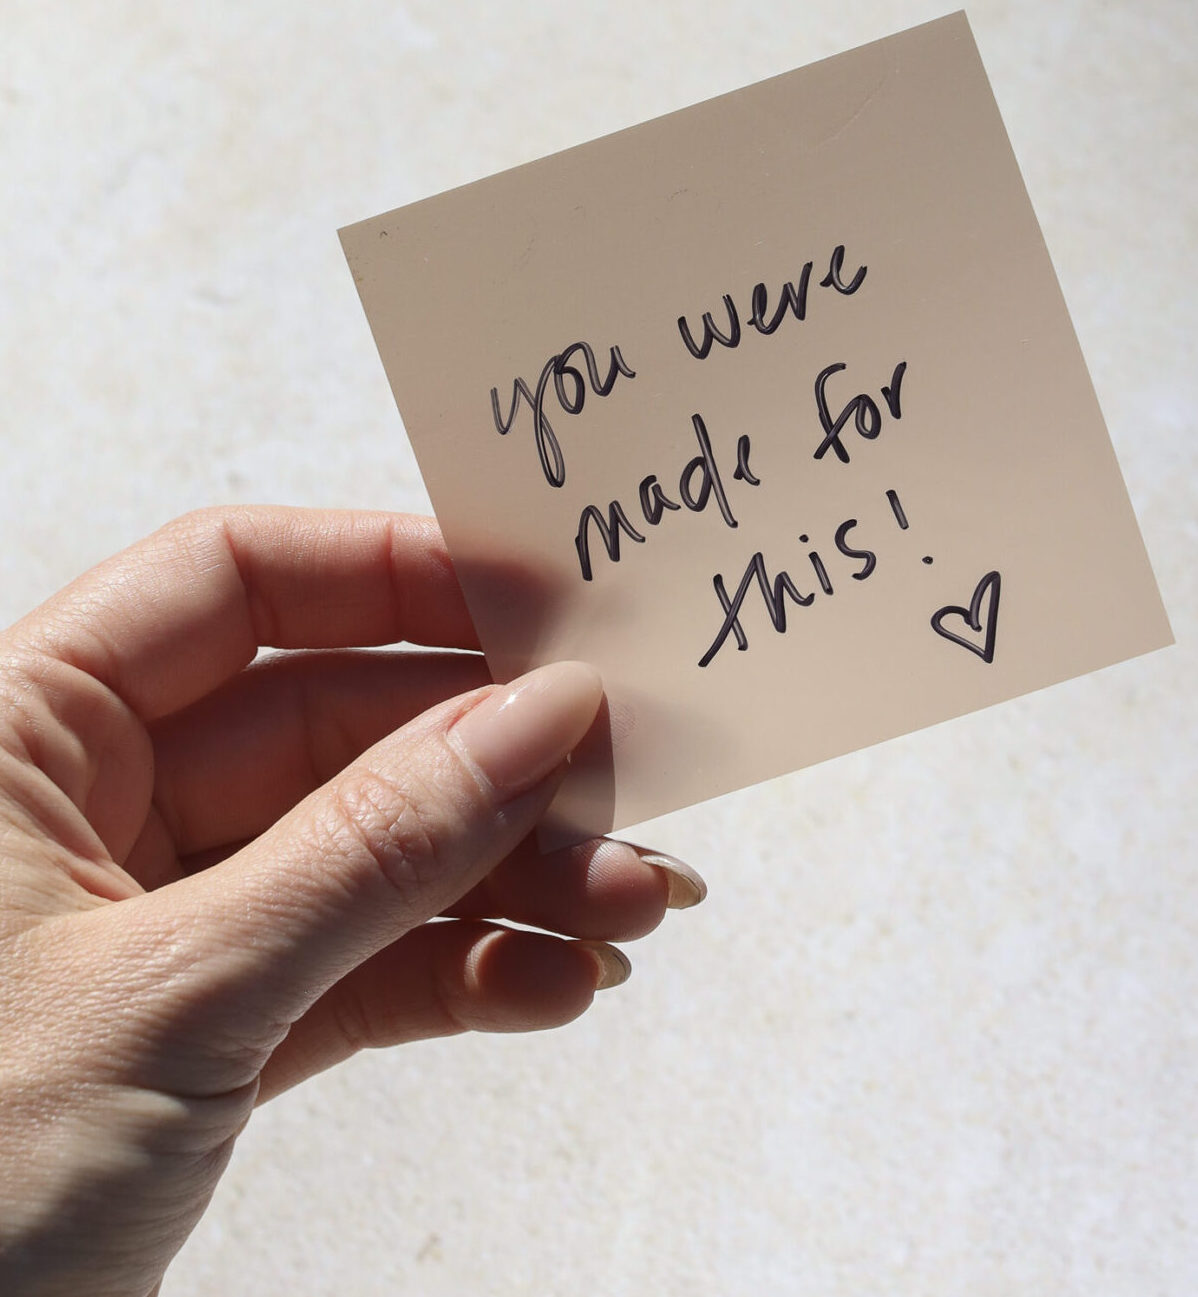 you were
made for
this!